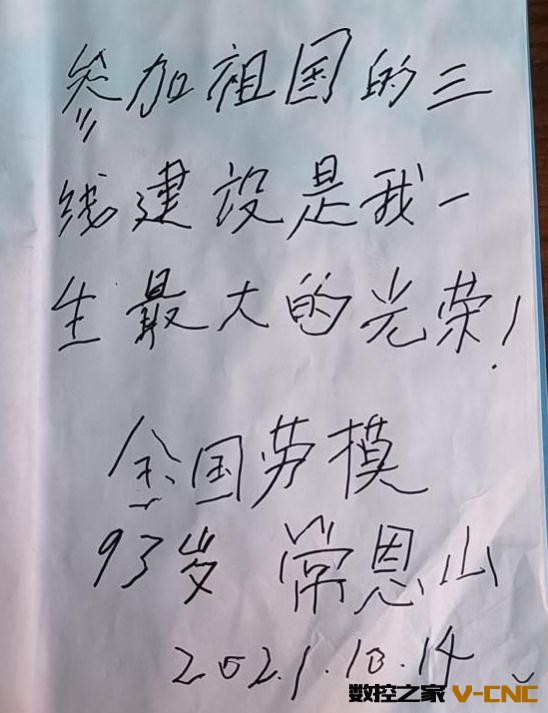 参加祖国的三
线建设是我一
生最大的光荣!
全国劳模
93岁 常恩山
2021.10.14
数控之家 V-CNC